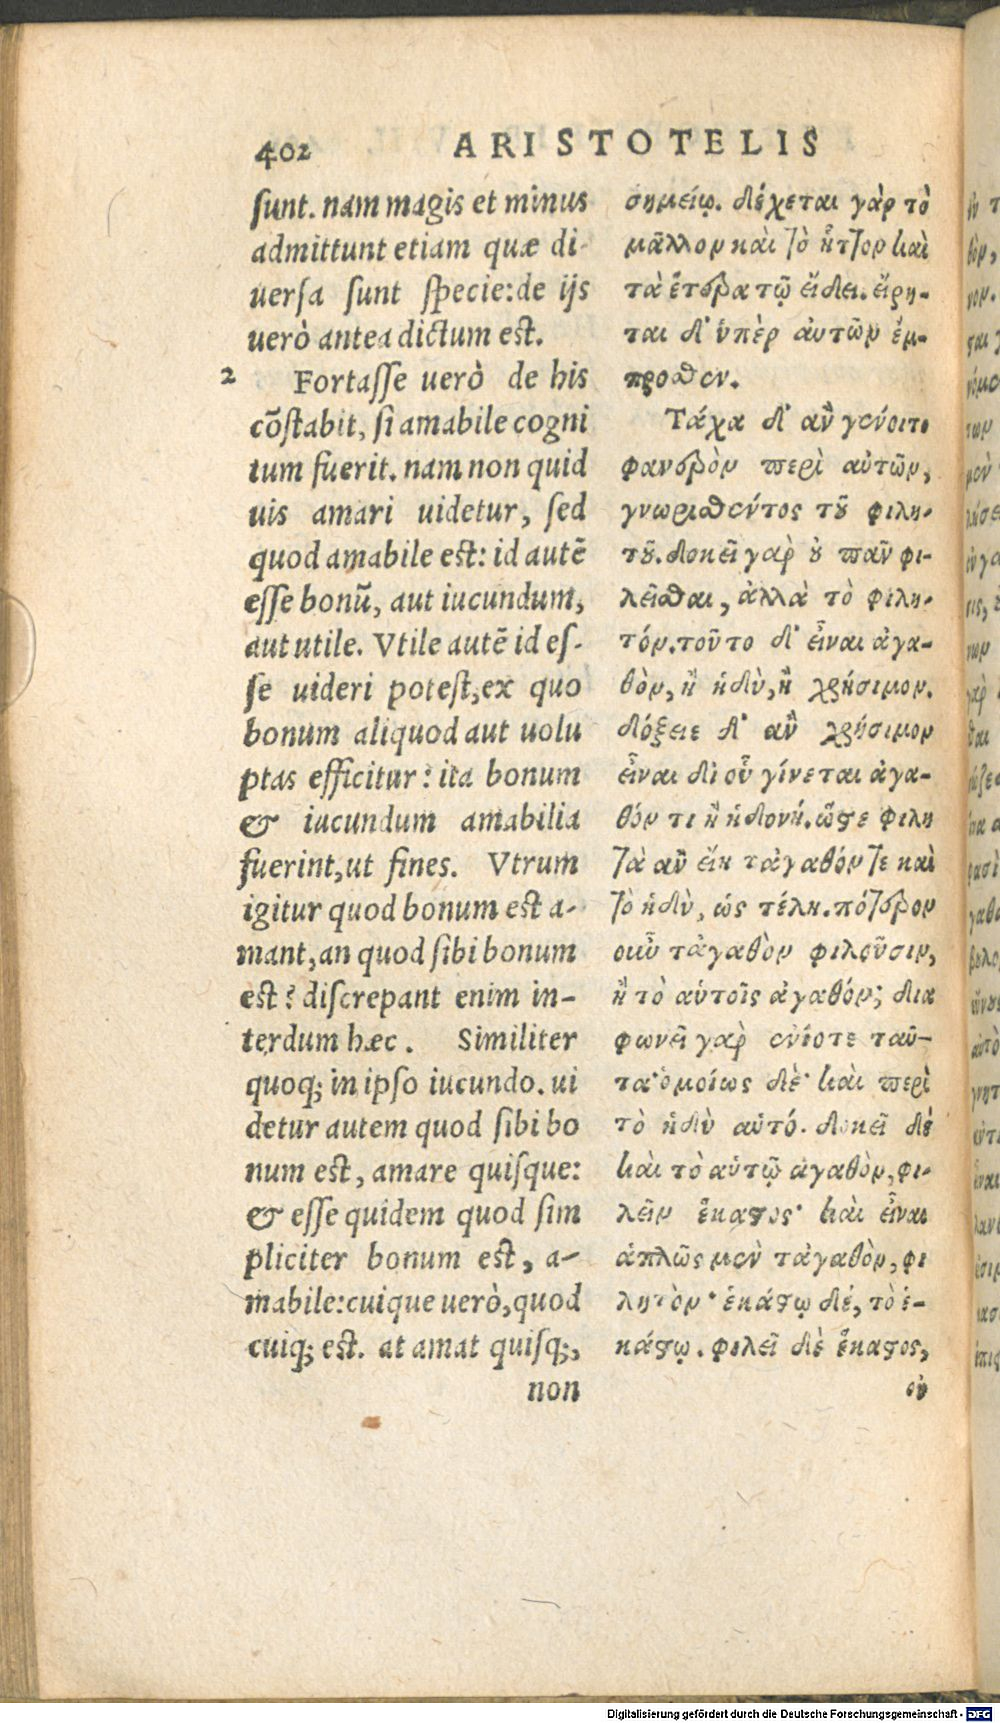 402 ARISTOTELIS
sunt. nam magis et minus
admittunt etiam quæ di-
uersa sunt specie: de ijs
uerò antea dictum est.
2 Fortasse uerò de his
cõstabit, si amabile cogni
tum fuerit. nam non quid
uis amari uidetur, sed
quod amabile est: id autē
esse bonũ, aut iucundum,
aut utile. Vtile autē id es-
se uideri potest, ex quo
bonum aliquod aut uolu
ptas efficitur: ita bonum
& iucundum amabilia
fuerint, ut fines. Vtrum
igitur quod bonum est a-
mant, an quod sibi bonum
est? discrepant enim in-
terdum hæc. Similiter
quoq; in ipso iucundo. ui
detur autem quod sibi bo
num est, amare quisque:
& esse quidem quod sim
pliciter bonum est, a-
mabile: cuique uerò, quod
cuiq; est. at amat quisq;,
non
σημείῳ. δέχεται γὰρ τὸ
μᾶλλον καὶ τὸ ἧττον καὶ
τὰ ἕτερα τῷ εἴδει. εἴρη-
ται δ' ὑπὲρ αὐτῶν ἔμ-
προσθεν.
Τάχα δ' ἂν γένοιτο
φανερὸν περὶ αὐτῶν,
γνωρισθέντος τοῦ φιλη-
τοῦ. δοκεῖ γὰρ οὐ πᾶν φι-
λεῖσθαι, ἀλλὰ τὸ φιλη-
τόν. τοῦτο δ' εἶναι ἀγα-
θὸν, ἢ ἡδὺ, ἢ χρήσιμον.
δόξειε δ' ἂν χρήσιμον
εἶναι δι οὗ γίνεται ἀγα-
θόν τι ἢ ἡδονή. ὥστε φιλη
τὰ ἂν εἴη τἀγαθόν τε καὶ
τὸ ἡδὺ, ὡς τέλη. πότερον
οὖν τἀγαθὸν φιλοῦσιν,
ἢ τὸ αὑτοῖς ἀγαθόν; δια
φωνεῖ γὰρ ἐνίοτε ταῦ-
τα· ὁμοίως δέ· καὶ περὶ
τὸ ἡδὺ αὐτό. δοκεῖ δὲ
καὶ τὸ αὑτῷ ἀγαθὸν, φι-
λεῖν ἕκαστος· καὶ εἶναι
ἁπλῶς μὲν τἀγαθὸν, φι
λητὸν· ἑκάστῳ δέ, τὸ ἑ-
κάστῳ. φιλεῖ δὲ ἕκαστος,
οὐ
Digitalisierung gefördert durch die Deutsche Forschungsgemeinschaft - DFG